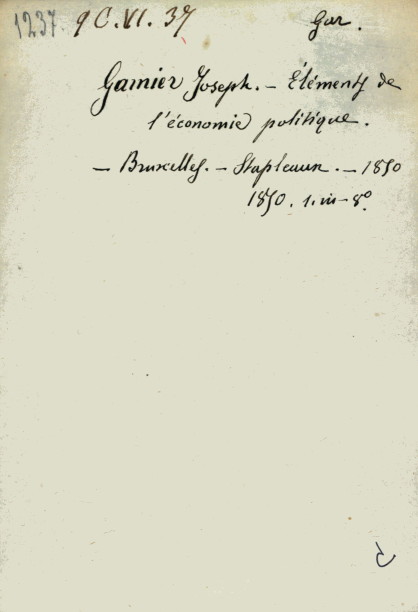 1237 9 C. VI. 37 Gar.
Garnier Joseph. – Éléments de
l'économie politique.
– Bruxelles. – Stapleaux. – 1850
1850. 1. in–8º